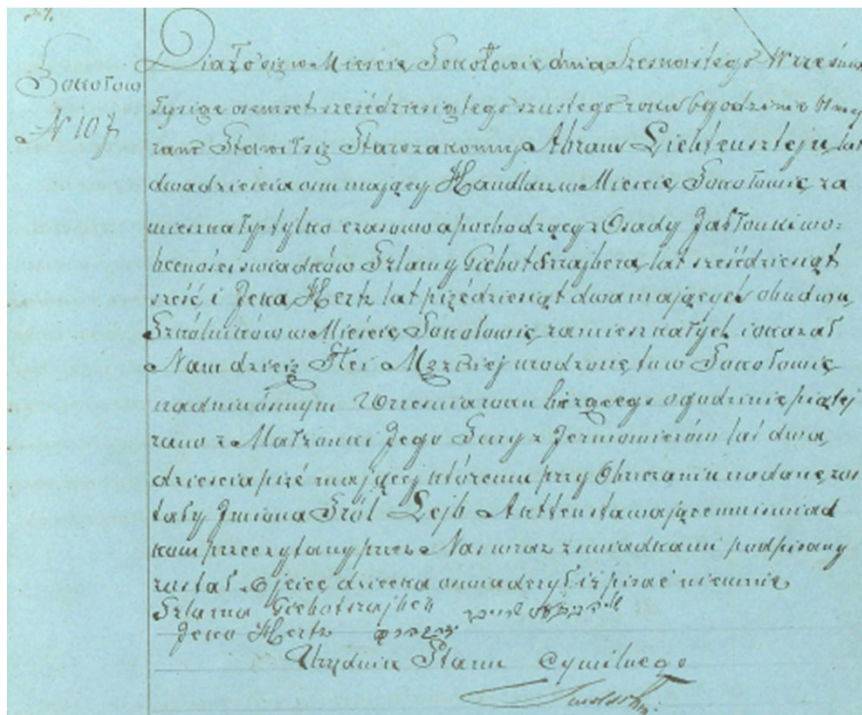 Sokołow
N 107
Działo się w Mieście Sokołowie dnia Szesnastego Wrześni
tysiąc osiemset sześćdziesiątego szóstego roku o godzinie
rano Stawił się Starozakonny Abram Lichtensztejn, lat
dwadzieścia osm mający Handlarz w Mieście Sokołowie za
mieszkały tylko czasowo a pochodzący z Osady Jabłonki w o-
becności świadków Szlamy lat sześćdziesiąt
sześć i Jcka Hertz lat pięćdziesiąt dwa mających obudwu
Szkólników w Mieście Sokołowie zamieszkałych i okazał
Nam dziecię Płci Męzkiej urodzone tu w Sokołowie
na dniu ósmym Września roku bieżącego o godzinie piątej
rano z Małżonki Jego Sury z lat dwa
dzieścia pięć mającej któremu przy Obrzezaniu nadane zos
tały Jmiona Sról Lejb Akt ten stawającemu i świad
kom przeczytany przez Nas wraz z świadkami podpisany
został. Ojciec dziecka oświadczył iż pisać nieumie
Szlama
Jcka Hertz
Urzędnik Stanu Cywilnego